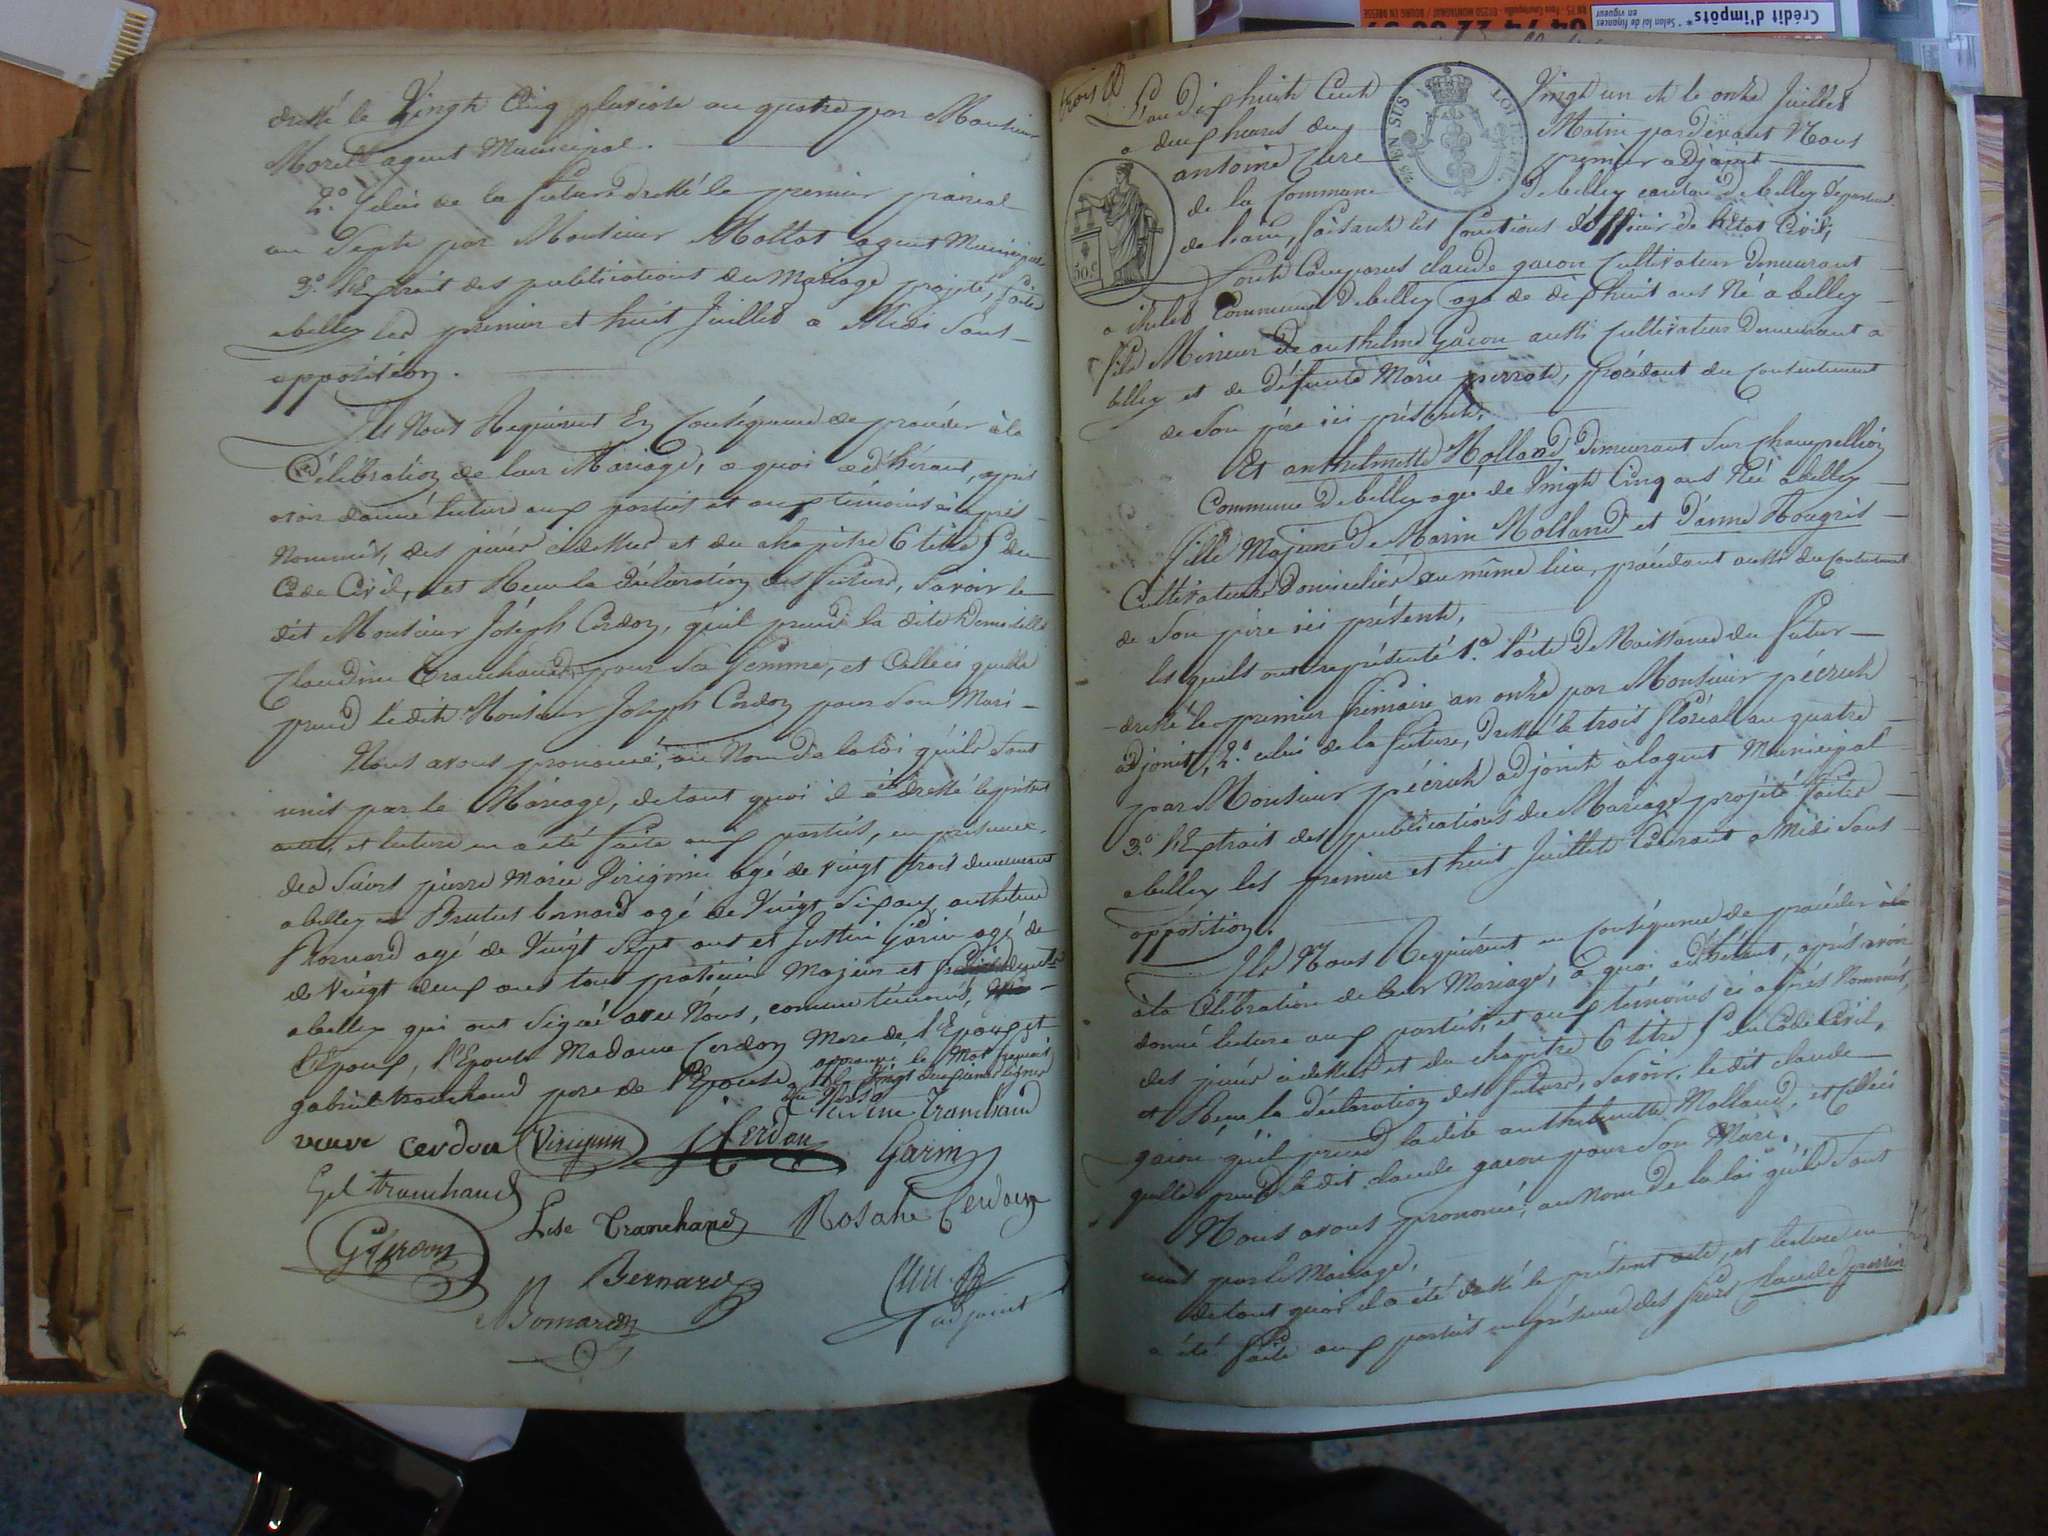 dressé le Vingt Cinq pluviose an quatre par Monsieur
Morell agent Municipal.
2.° Celui de la future dressé le premier prairial
an Sept par Monsieur Mollot agent Municipal
3.° l'Extrait des publications du Mariage projeté, faites
a belley les premier et huit Juillet a Midi Sans
opposition.
Ils Nous Requierent En Conséquence de procéder à la
Célébration de leur Mariage, a quoi adhérant, après
avoir donné lecture aux parties et aux témoins ci après
Nommés, des pièces ci dessus et du chapitre 6 titre 5 du
Code Civil, et Recu la déclaration des futurs, Savoir le
dit Monsieur Joseph Cerdon, qu'il prend la dite Demoiselle
Claudine Tranchand, pour Sa femme, et Celleci quelle
prend le dit Monsieur Joseph Cerdon pour Son Mari
Nous avons prononcé, au Nom de la loi qu'ils Sont
unis par le Mariage, de tout quoi il a été dressé le présent
acte, et lecture en a été faite aux parties, en présence
des Sieurs pierre Marie Virignin agé de vingt trois demeurant
a belley Brutus bernard agé de Vingt Six ans, anthelme
Bonnard agé de Vingt Sept ans et Justin Garin agé de
de vingt deux ans tous praticiens Majeurs et
a belley qui ont Signé avec Nous, comme témoins,
l'Epoux, l'Epouse Madame Cerdon Mere de l'Epoux et
gabriel tranchand pere de l'Epouse. approuvé le Mot
Vingt deuxieme ligne
du Verso
Tranchand
veuve cerdon Virignin Cerdon Garin
Gel tranchand
Lise Tranchand Rosalie Cerdon
G Cerdon
Bernard
Bonnard
adjoint
L'an dix huit Cent Vingt un et le onze Juillet
a deux heures du Matin par devant Nous
antoine Cure premier adjoint
EN SUS
LOI DE
de la Commune de belley canton de belley Departemt.
de l'ain, faisant les fonctions d'officier de l'Etat Civil,
50.C
Sont Comparus claude gacon Cultivateur demeurant
a Commune de belley agé de dix huit ans Né a belley
fils Mineur de anthelme Gacon aussi Cultivateur demeurant a
belley et de défunte Marie perrot, procédant du Consentement
de Son père ici présent,
Et anthelmette Molland demeurant Sur Champellion
Commune de belley agée de Vingt Cinq ans Née a belley
fille Majeure de Marin Molland et d'anne Hougris
Cultivateurs domiciliés au même lieu, procédant aussi du Consentement
de Son père ici présent,
les quels ont représenté 1.° l'acte de Naissance du futur
dressé le premier frimaire an onze par Monsieur pécruh
adjoint, 2.° celui de la future, dressé le trois floréal an quatre
par Monsieur pécruh adjoint à l'agent Municipal
3.° l'Extrait des publications du Mariage projeté faites
a belley les premier et huit Juillet Courant a Midi Sans
opposition.
Ils Nous Requiérent en Conséquence de procéder à la
à la Célébration de leur Mariage, à quoi adhérant, après avoir
donné lecture aux parties, et aux témoins ci après Nommés,
des pièces ci dessus et du chapitre 6 titre 5 du Code Civil,
et Recu la déclaration des futurs, Savoir, le dit claude
gacon qu'il prend la dite anthelmette Molland, et Celleci
quelle prend le dit claude gacon pour Son Mari.
Nous avons prononcé, au nom de la loi qu'ils Sont
unis par le Mariage.
de tout quoi il a été dressé le présent acte, et lecture en
a été faite aux parties en présence des Sieurs Claude perrin
Crédit d'impôts*
* Selon loi de finances
en vigueur